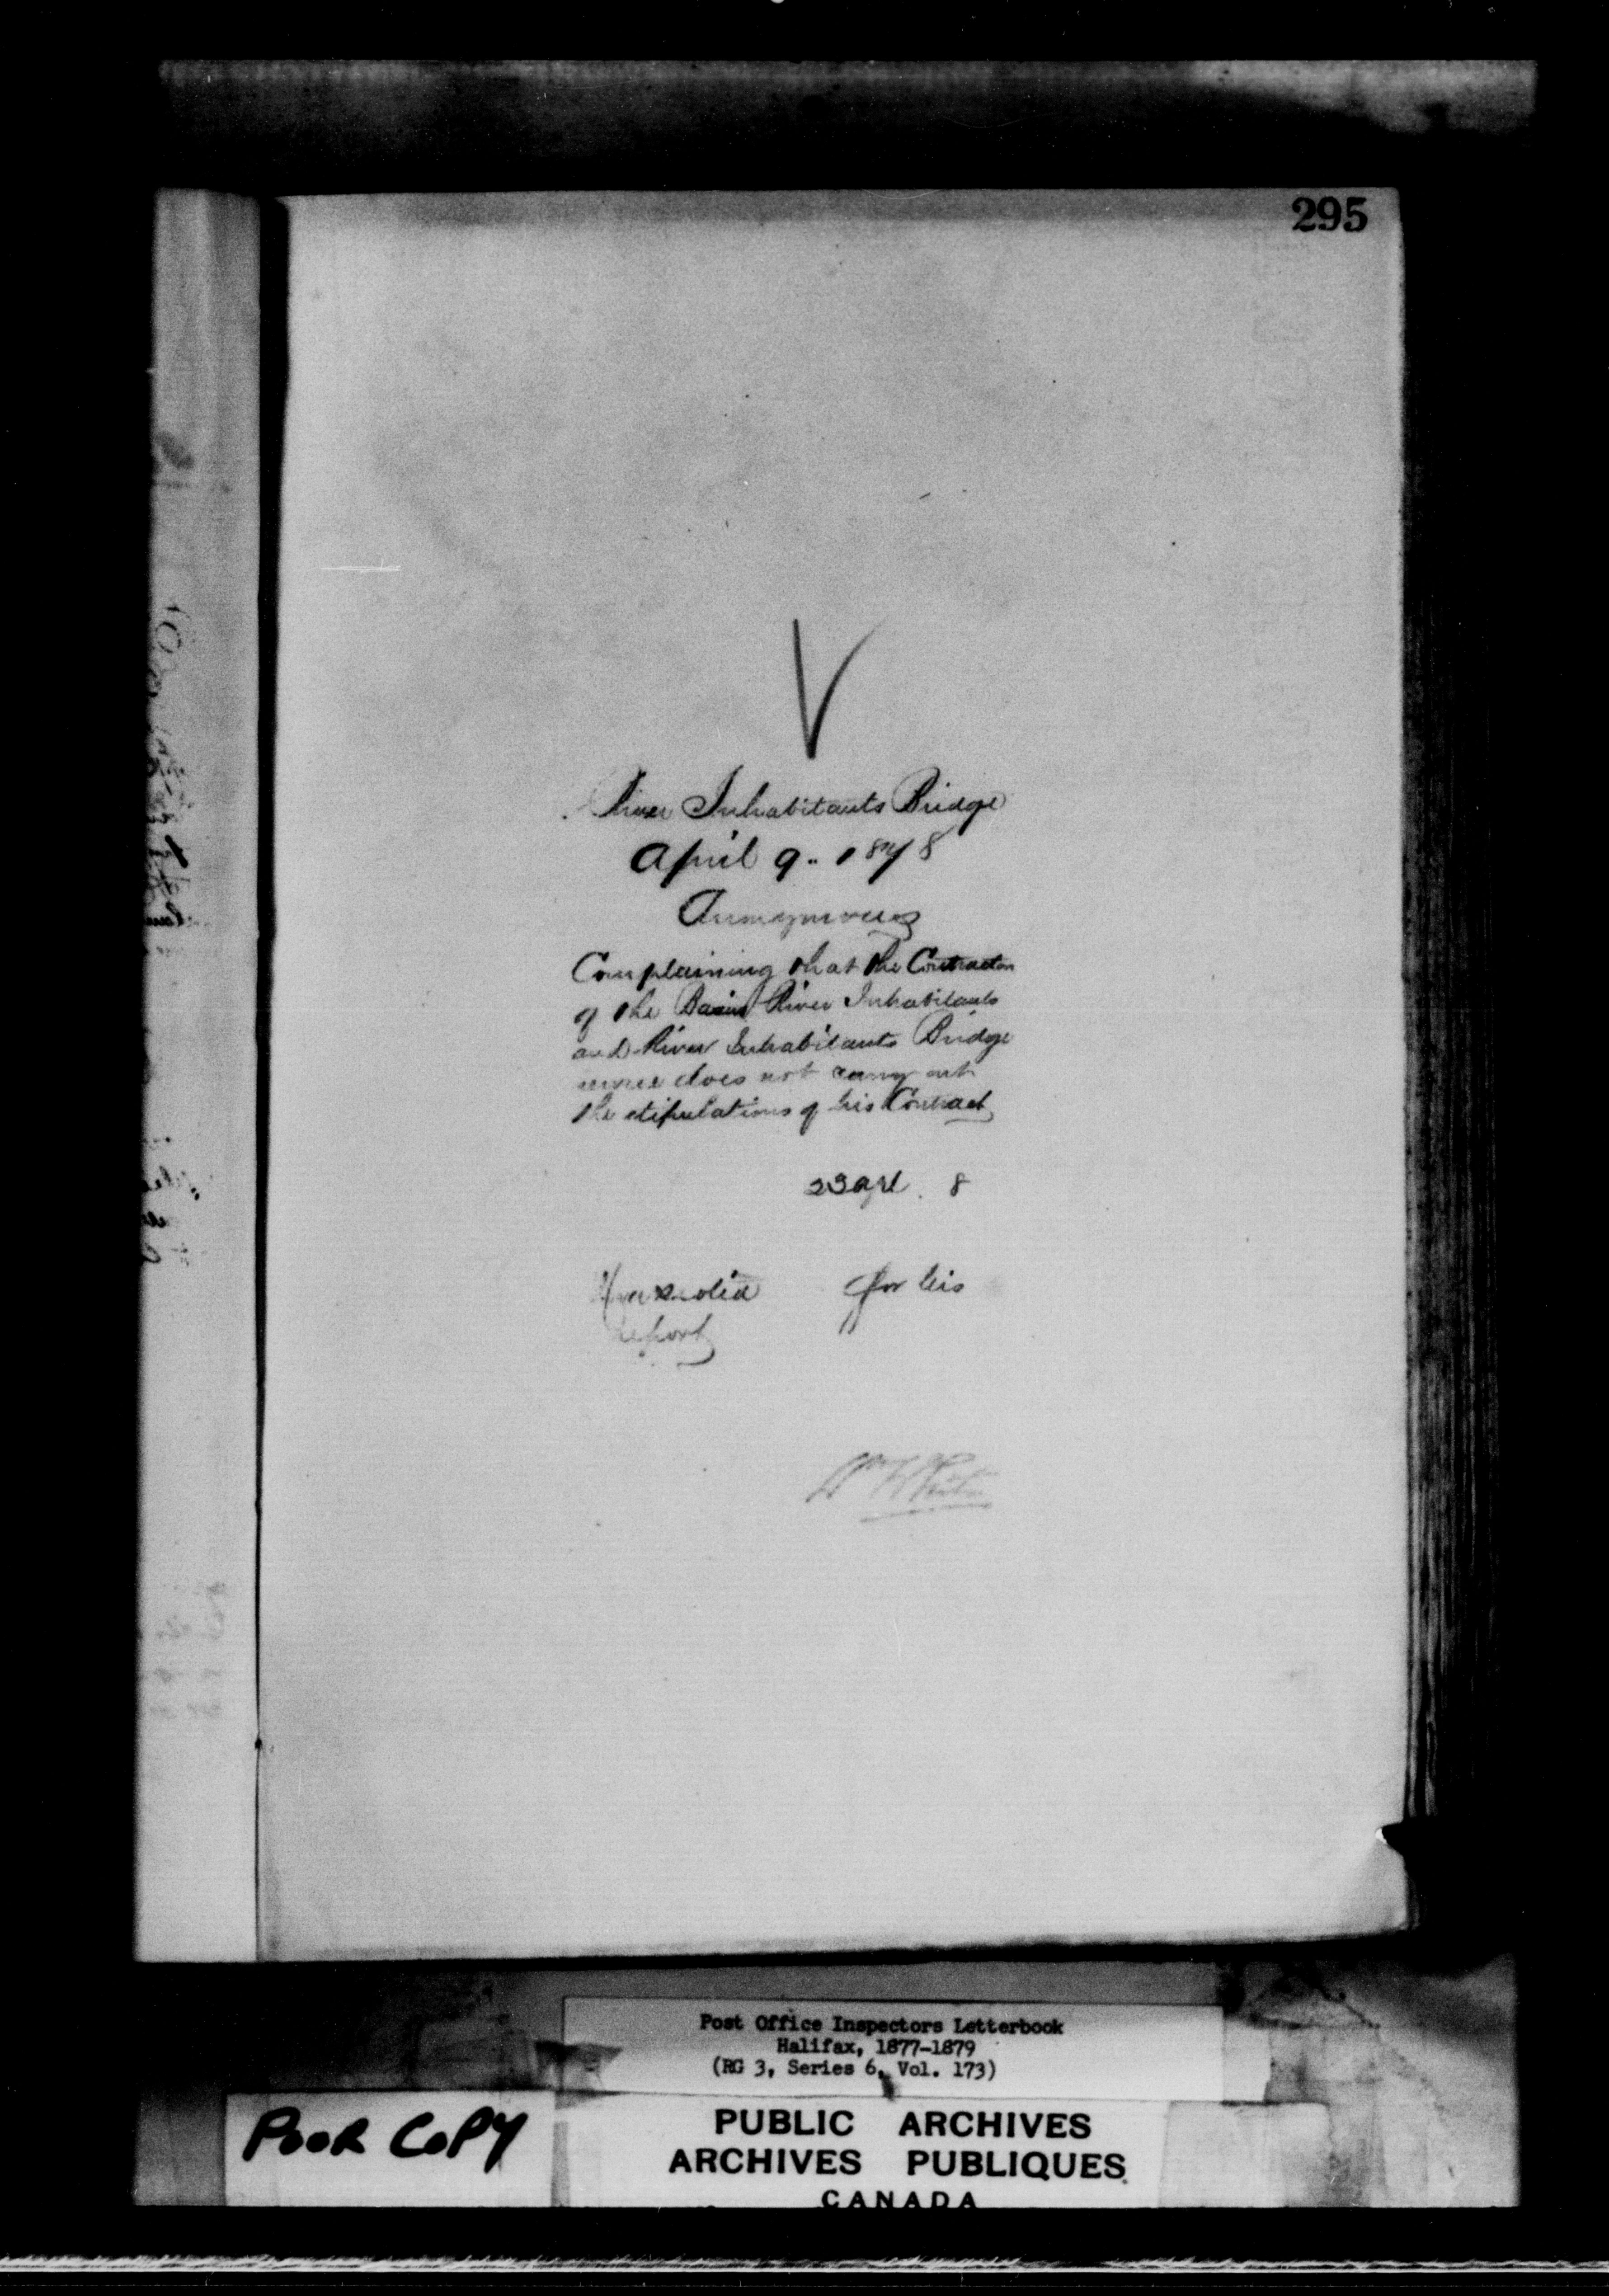 295
River Inhabitants Bridge
April 9.. 1878
Anonymous
Complaining that the Contractor
of the Basin River Inhabitants
and River Inhabitants Bridge
service does not carry out
the stipulations of his Contract
23 Apl. 8
for his
report
Post Office Inspectors Letterbook
Halifax, 1877-1879
(RG 3, Series 6, Vol. 173)
POOR COPY
PUBLIC ARCHIVES
ARCHIVES PUBLIQUES
CANADA